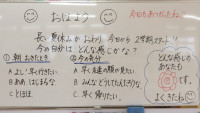 おはよう
今日もあつい
長い夏休みがおわり、今日から2学期スタート！
今の自分はどんな感じかな？
① 朝おきたとき
A よし！早く行きたい
B ああ はじまるな
C とほほ
② 今の気分
A 早く友達の顔が見たい
B みんなどうしてたんだろうな
C 早く帰りたい。
どんな感じの
あなたも
です。
よくきたね